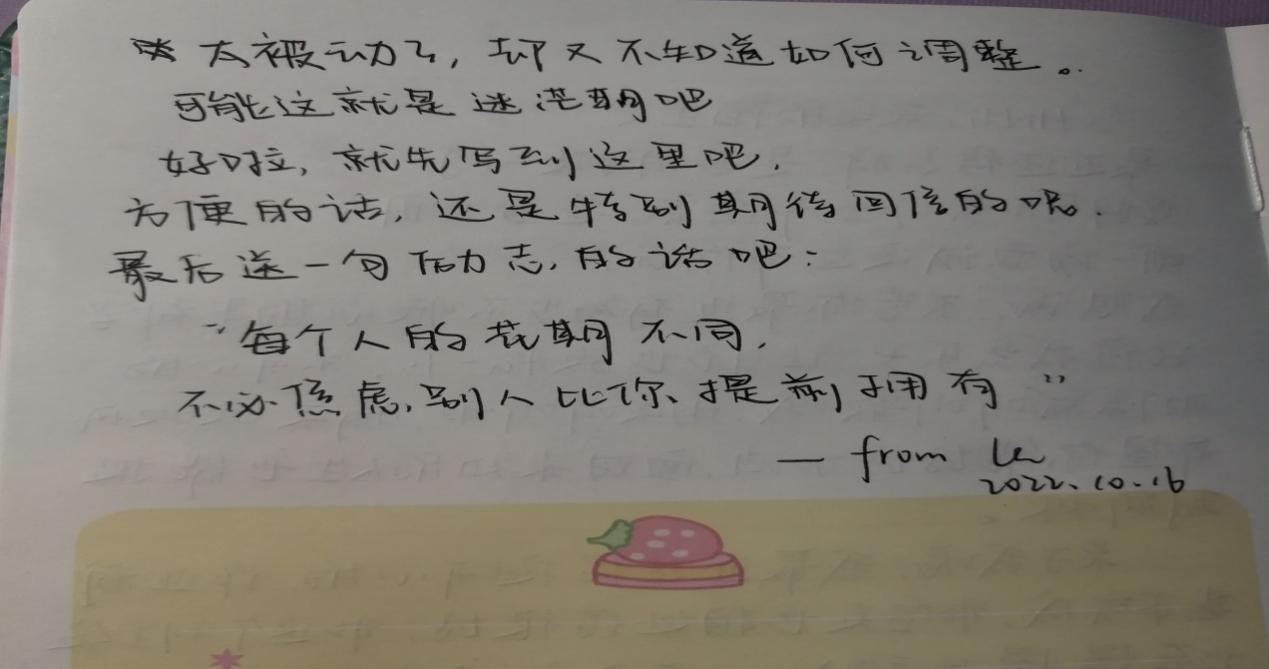 太被动了,却又不知道如何调整。
可能这就是迷茫期吧
好啦,就先写到这里吧.
方便的话,还是特别期待回信的呢.
最后送一句励志的话吧:
“每个人的花期不同,
不必焦虑,别人比你提前拥有”
— from
2022.10.16